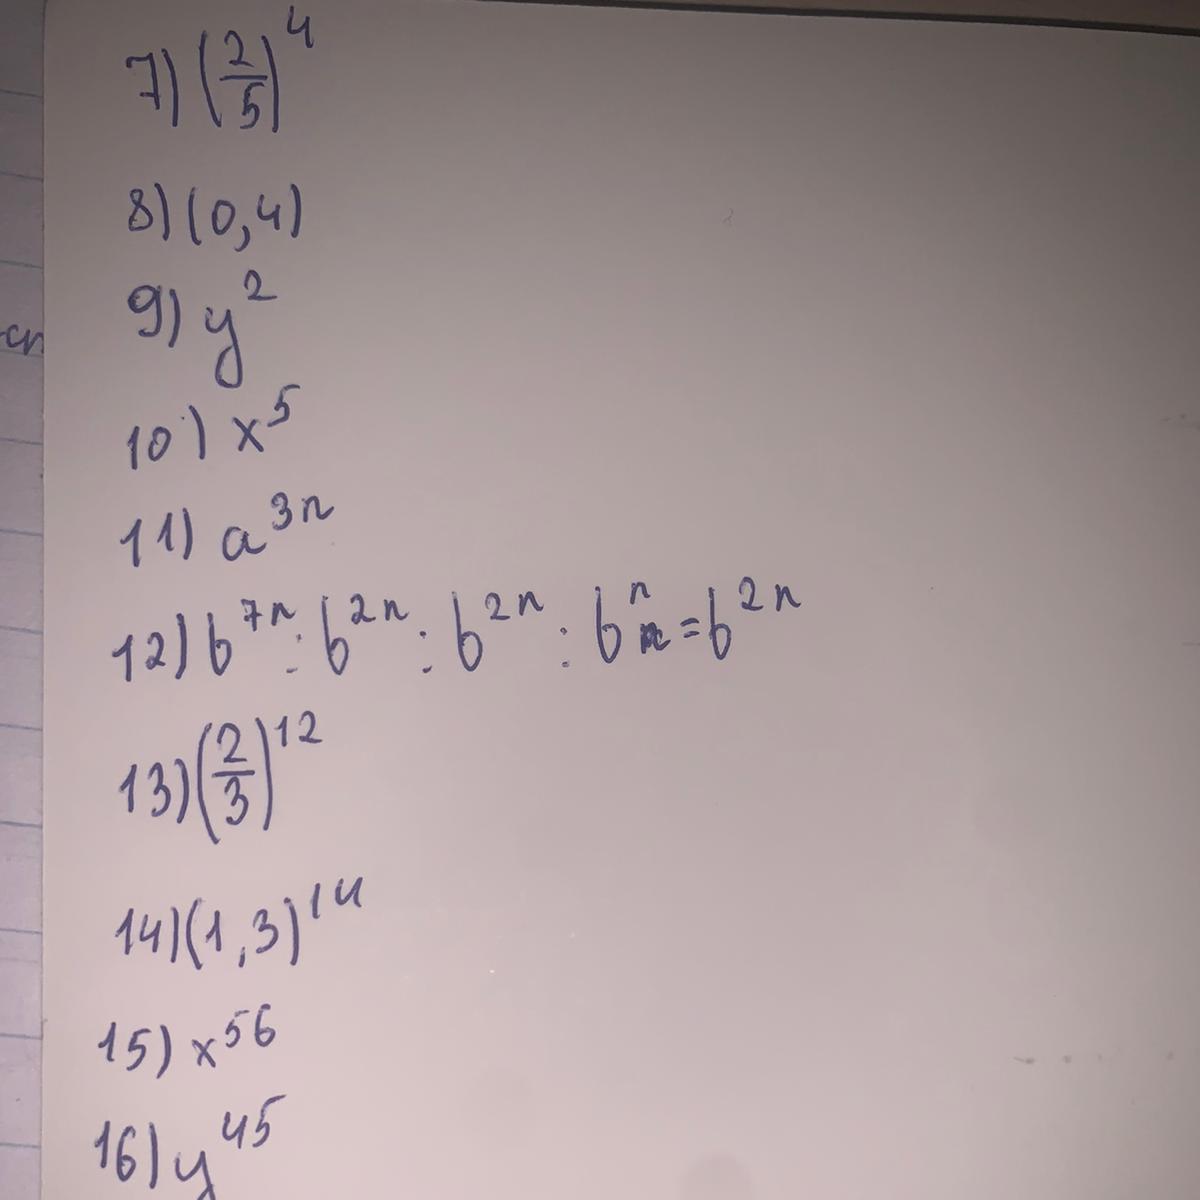 7) (2/5)^4
8) (0,4)
9) y^2
10) x^5
11) a^3n
12) b^7n : b^2n : b^2n : b^n = b^2n
13) (2/3)^12
14) (1,3)^14
15) x^56
16) y^45